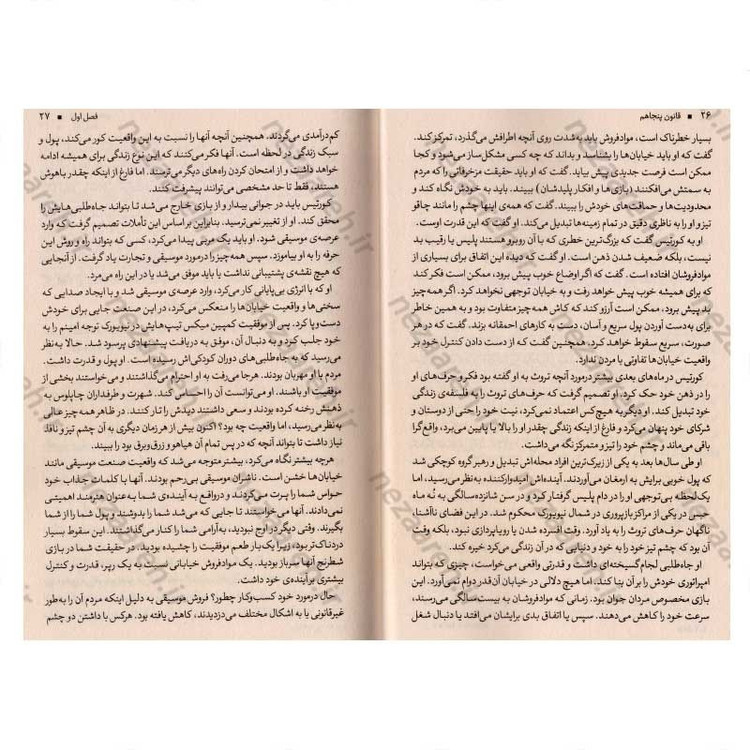 ۲۶ ■ قانون پنجاهم
بسیار خطرناک است، موادفروش باید به‌شدت روی آنچه اطرافش می‌گذرد، تمرکز کند.
گفت که او باید خیابان‌ها را بشناسد و بداند که چه کسی مشکل‌ساز می‌شود و کجا
ممکن است فرصت جدیدی پیش بیاید. گفت که او باید حقیقت مزخرفاتی را که مردم
به سمتش می‌افکنند (بازی‌ها و افکار پلیدشان) ببیند. باید به خودش نگاه کند و
محدودیت‌ها و حماقت‌های خودش را ببیند. گفت که همه‌ی اینها چشم را مانند چاقو
تیز و او را به ناظری دقیق در تمام زمینه‌ها تبدیل می‌کند. او گفت که این قدرت اوست.
او به کورتیس گفت که بزرگ‌ترین خطری که با آن روبرو هستند پلیس یا رقیب بد
نیست، بلکه ضعیف شدن ذهن است. او گفت که دیده این اتفاق برای بسیاری از
موادفروشان افتاده است. گفت که اگر اوضاع خوب پیش برود، ممکن است فکر کند
که برای همیشه خوب پیش خواهد رفت و به خیابان توجهی نخواهد کرد. اگر همه‌چیز
بد پیش برود، ممکن است آرزو کند که کاش همه‌چیز متفاوت بود و به همین خاطر
برای به‌دست آوردن پول سریع و آسان، دست به کارهای احمقانه بزند. گفت که در هر
صورت، سریع سقوط خواهد کرد. همچنین گفت که از دست دادن کنترل خود بر
واقعیت خیابان‌ها تفاوتی با مردن ندارد.
کورتیس در ماه‌های بعدی بیشتر درمورد آنچه تروث به او گفته بود فکر و حرف‌های او
را در ذهن خود حک کرد. او تصمیم گرفت که حرف‌های تروث را به فلسفه‌ی زندگی
خود تبدیل کند. او دیگر به هیچ‌کس اعتماد نمی‌کرد، نیت خود را حتی از دوستان و
شرکای خود پنهان می‌کرد و فارغ از اینکه زندگی چقدر او را بالا یا پایین می‌برد، واقع‌گرا
باقی می‌ماند و چشم خود را تیز و متمرکز نگه می‌داشت.
او طی سال‌ها بعد به یکی از زیرک‌ترین افراد محله‌اش تبدیل و رهبر گروه کوچکی شد
که پول خوبی برایش به ارمغان می‌آوردند. آینده‌اش امیدوارکننده به‌نظر می‌رسید، اما
یک‌لحظه بی‌توجهی او را در دام پلیس گرفتار کرد و در سن شانزده‌سالگی به نُه ماه
حبس در یکی از مراکز بازپروری در شمال نیویورک محکوم شد. در این فضای ناآشنا،
ناگهان حرف‌های تروث را به یاد آورد. وقت افسرده شدن یا رویاپردازی نبود، بلکه وقت
آن بود که چشم تیز خود را به خود و دنیایی که در آن زندگی می‌کرد خیره کند.
او جاه‌طلبی لجام گسیخته‌ای داشت و قدرتی واقعی می‌خواست، چیزی که بتواند
امپراتوری خودش را بر آن بنا کند. اما هیچ دلالی در خیابان آن‌قدر دوام نمی‌آورد. این
بازی مخصوص مردان جوان بود. زمانی که موادفروشان به بیست‌سالگی می‌رسند،
سرعت خود را کاهش می‌دهند. سپس یا اتفاق بدی برایشان می‌افتد یا دنبال شغل
فصل اول ■ ۲۷
کم‌درآمدی می‌گردند. همچنین آنچه آنها را نسبت به این واقعیت کور می‌کند، پول و
سبک زندگی در لحظه است. آنها فکر می‌کنند که این نوع زندگی برای همیشه ادامه
خواهد داشت و از امتحان کردن راه‌های دیگر می‌ترسند. اما فارغ از اینکه چقدر باهوش
هستند، فقط تا حد مشخصی می‌توانند پیشرفت کنند.
کورتیس باید در جوانی بیدار و از بازی خارج می‌شد تا بتواند جاه‌طلبی‌هایش را
محقق کند. او از تغییر نمی‌ترسید. بنابراین بر اساس این تأملات تصمیم گرفت که وارد
عرصه‌ی موسیقی شود. او باید یک مربی پیدا می‌کرد، کسی که بتواند راه و روش این
حرفه را به او بیاموزد. سپس همه‌چیز را درمورد موسیقی و تجارت یاد گرفت. از آنجایی
که هیچ نقشه‌ی پشتیبانی نداشت یا باید موفق می‌شد یا در این راه می‌مرد.
او که با انرژی بی‌پایانی کار می‌کرد، وارد عرصه‌ی موسیقی شد و با ایجاد صدایی که
سختی‌ها و واقعیت خیابان‌ها را منعکس می‌کرد، در این صنعت جایی برای خودش
دست‌وپا کرد. پس از موفقیت کمپین میکس تیپ‌هایش در نیویورک توجه امینم را به
خود جلب کرد و به دنبال آن، موفق به دریافت پیشنهادی پرسود شد. حالا به‌نظر
می‌رسید که به جاه‌طلبی‌های دوران کودکی‌اش رسیده است. او پول و قدرت داشت.
مردم با او مهربان بودند. هرجا می‌رفت به او احترام می‌گذاشتند و می‌خواستند بخشی از
موفقیت او باشند. او می‌توانست آن را احساس کند. شهرت و طرفداران چاپلوس به
ذهنش رخنه کرده بودند و سعی داشتند دیدش را تار کنند. در ظاهر همه‌چیز عالی
به‌نظر می‌رسید، اما واقعیت چه بود؟ اکنون بیش از هر زمان دیگری به آن چشم تیز و نافذ
نیاز داشت تا بتواند آنچه که در پس تمام آن هیاهو و زرق‌وبرق بود را ببیند.
هرچه بیشتر نگاه می‌کرد، بیشتر متوجه می‌شد که واقعیت صنعت موسیقی مانند
خیابان‌ها خشن است. ناشران موسیقی بی‌رحم بودند. آنها با کلمات جذاب خود
حواس شما را پرت می‌کردند و درواقع به آینده‌ی شما به‌عنوان هنرمند اهمیتی
نمی‌دادند. آنها می‌خواستند تا جایی که می‌شد شما را بدوشند و پول شما را از شما
بگیرند. وقتی دیگر در اوج نبودید، به‌آرامی شما را کنار می‌گذاشتند. این سقوط بسیار
دردناک‌تر بود، زیرا یک بار طعم موفقیت را چشیده بودید. در حقیقت شما در بازی
شطرنج آنها سرباز بودید. یک موادفروش خیابانی نسبت به یک رپر، قدرت و کنترل
بیشتری بر آینده‌ی خود داشت.
حال درمورد خود کسب‌وکار چطور؟ فروش موسیقی به دلیل اینکه مردم آن را به‌طور
غیرقانونی یا به اشکال مختلف می‌دزدیدند، کاهش یافته بود. هرکس با داشتن دو چشم
nezaareh.ir